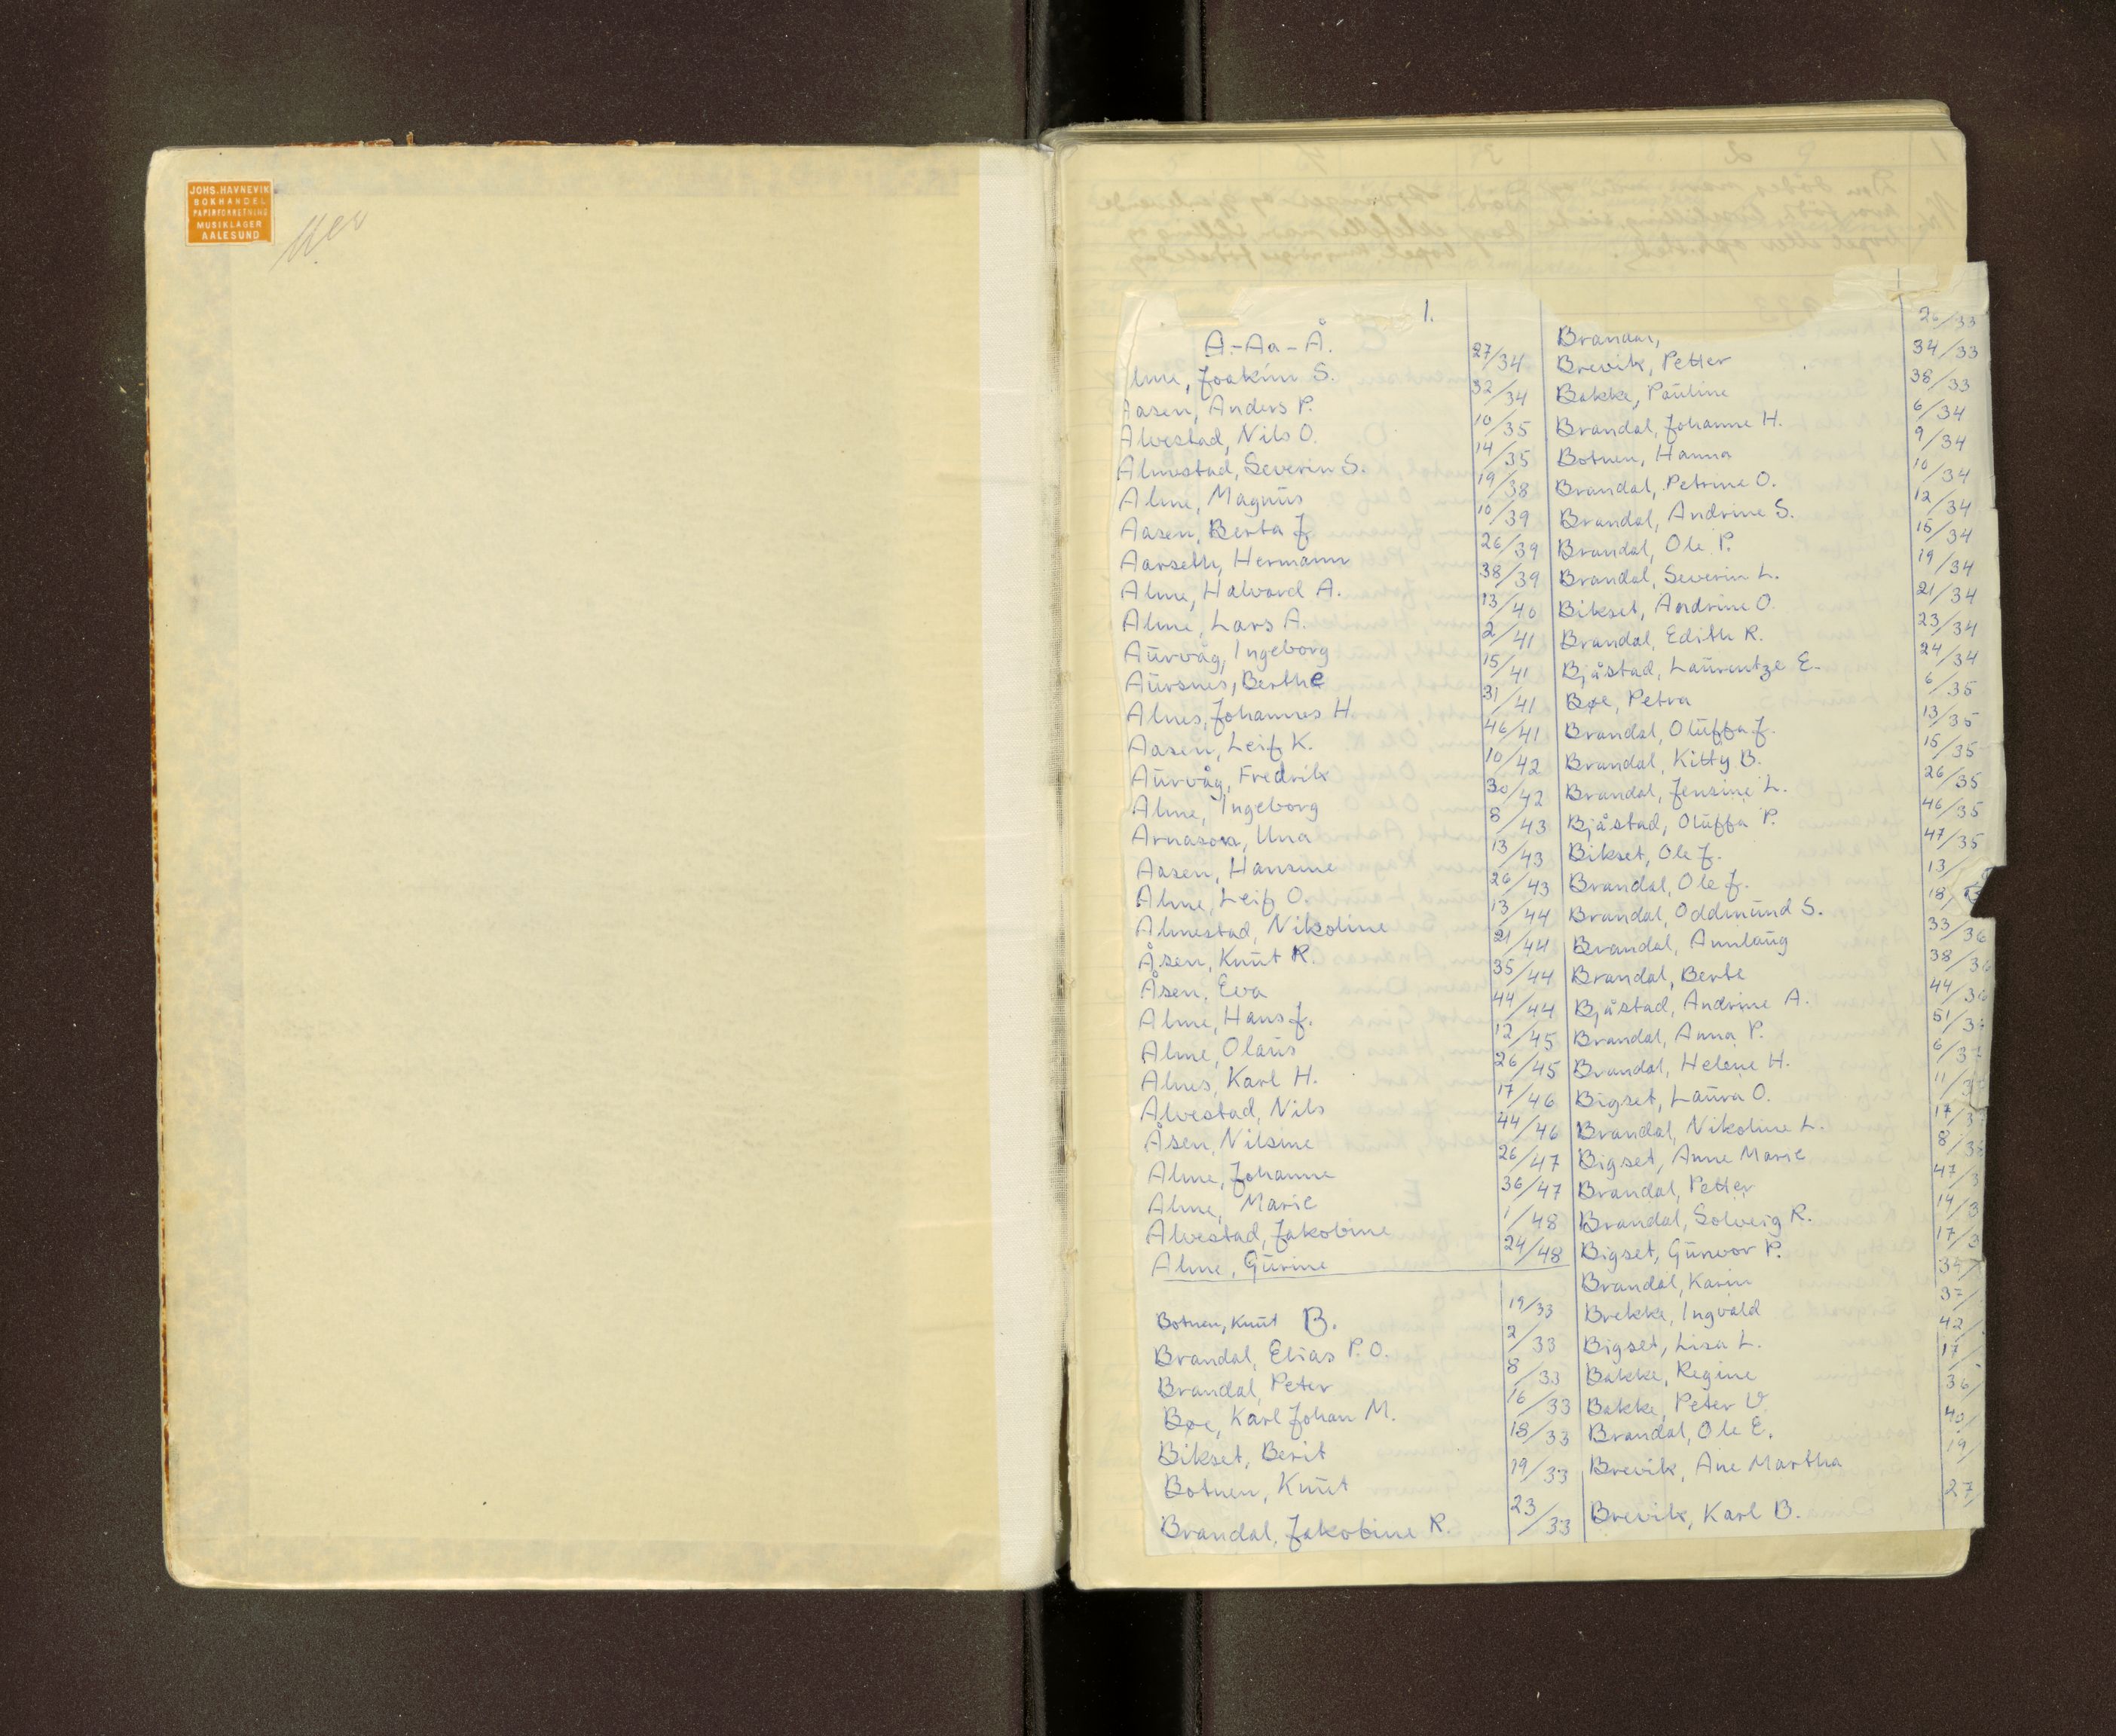 JOHS. HAVNEVIK
BOKHANDEL
PAPIRFORRETNING
MUSIKLAGER
AALESUND
1.
A-Aa-Å.
lme, Joakim S. 27/34
Aasen, Anders P. 32/34
Alvestad, Nils O. 10/35
Almestad, Severin S. 14/35
Alme, Magnus 19/38
Aasen, Berta J 10/39
Aarseth, Hermann 26/39
Alme, Halvard A. 38/39
Alme, Lars A. 13/40
Aurvåg, Ingeborg 2/41
Aursnes, Berthe 15/41
Alnes, Johannes H. 31/41
Aasen, Leif K. 46/41
Aurvåg, Fredrik 10/42
Alme, Ingeborg 30/42
Arnason, Una 8/43
Aasen, Hansine 13/43
Alme, Leif O. 26/43
Almestad, Nikoline 13/44
Åsen, Knut R. 21/44
Åsen, Eva 35/44
Alme, Hans J. 44/44
Alme, Olaus 12/45
Alnes, Karl H. 26/45
Alvestad, Nils 17/46
Åsen, Nilsine 44/46
Alme, Johanne 26/47
Alme, Marie 36/47
Alvestad, Jakobine 1/48
Alme, Gurine 24/48
B.
Botnen, Knut 19/33
Brandal, Elias P.O. 2/33
Brandal, Peter 8/33
Bøe, Karl Johan M. 16/33
Bikset, Berit 18/33
Botnen, Knut 19/33
Brandal, Jakobine R. 23/33
Brandal, 26/33
Brevik, Petter 34/33
Bakke, Pauline 38/33
Brandal, Johanne H. 6/34
Botnen, Hanna 9/34
Brandal, Petrine O. 10/34
Brandal, Andrine S. 12/34
Brandal, Ole P. 15/34
Brandal, Severin L. 19/34
Bikset, Andrine O. 21/34
Brandal, Edith R. 23/34
Bjåstad, Laurentze E. 24/34
Bøe, Petra 6/35
Brandal, Oluffa J. 13/35
Brandal, Kitty B. 15/35
Brandal, Jensine L. 26/35
Bjåstad, Oluffa P. 46/35
Bikset, Ole J. 47/35
Brandal, Ole J. 13/
Brandal, Oddmund S. 18/
Brandal, Annlaug 33/36
Brandal, Berte 38/36
Bjåstad, Andrine A. 44/36
Brandal, Anna P. 51/3
Brandal, Helene H. 6/37
Bigset, Laura O. 11/3
Brandal, Nikoline L. 17/3
Bigset, Anne Marie 8/38
Brandal, Petter 47/3
Brandal, Solveig R. 14/3
Bigset, Gunvor P. 17/3
Brandal, Karin 34/
Brekke, Ingvald 37/
Bigset, Lisa L. 42/
Bakke, Regine 17/
Bakke, Peter V. 36/
Brandal, Ole E. 40/
Brevik, Ane Martha 19/
Brevik, Karl B. 27/